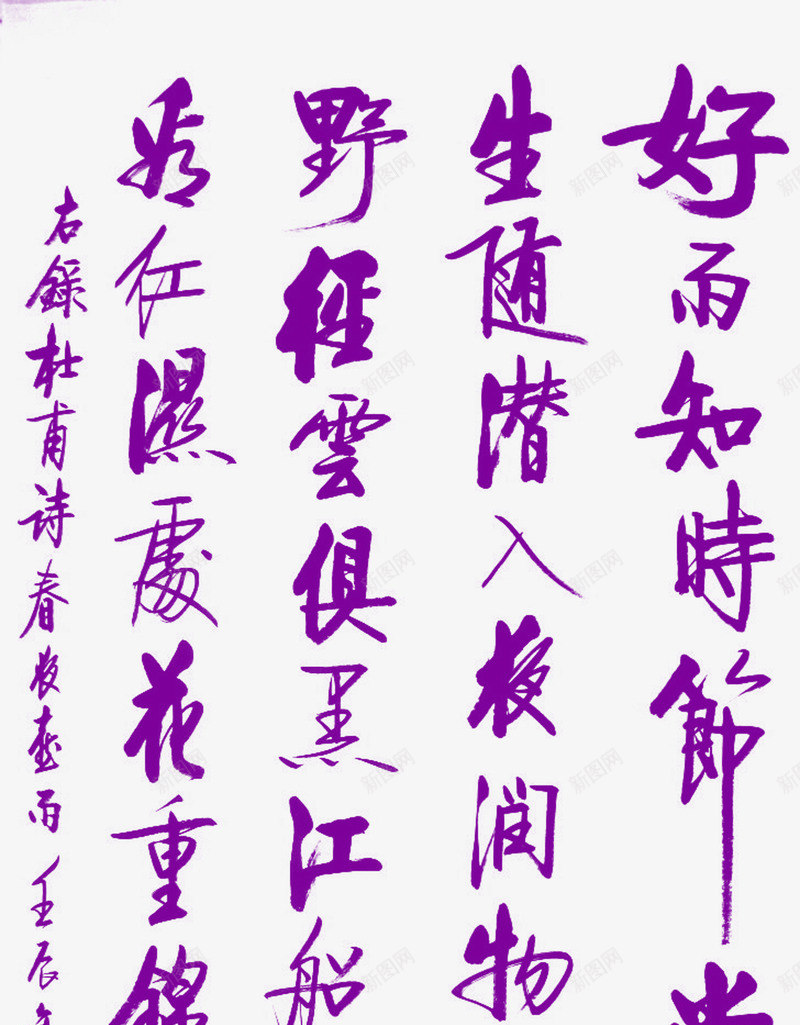 好雨知時節
生随潜入夜润物
野徑雲俱黑江船
看红濕處花重錦
右錄杜甫诗春夜喜雨 壬辰
新图网